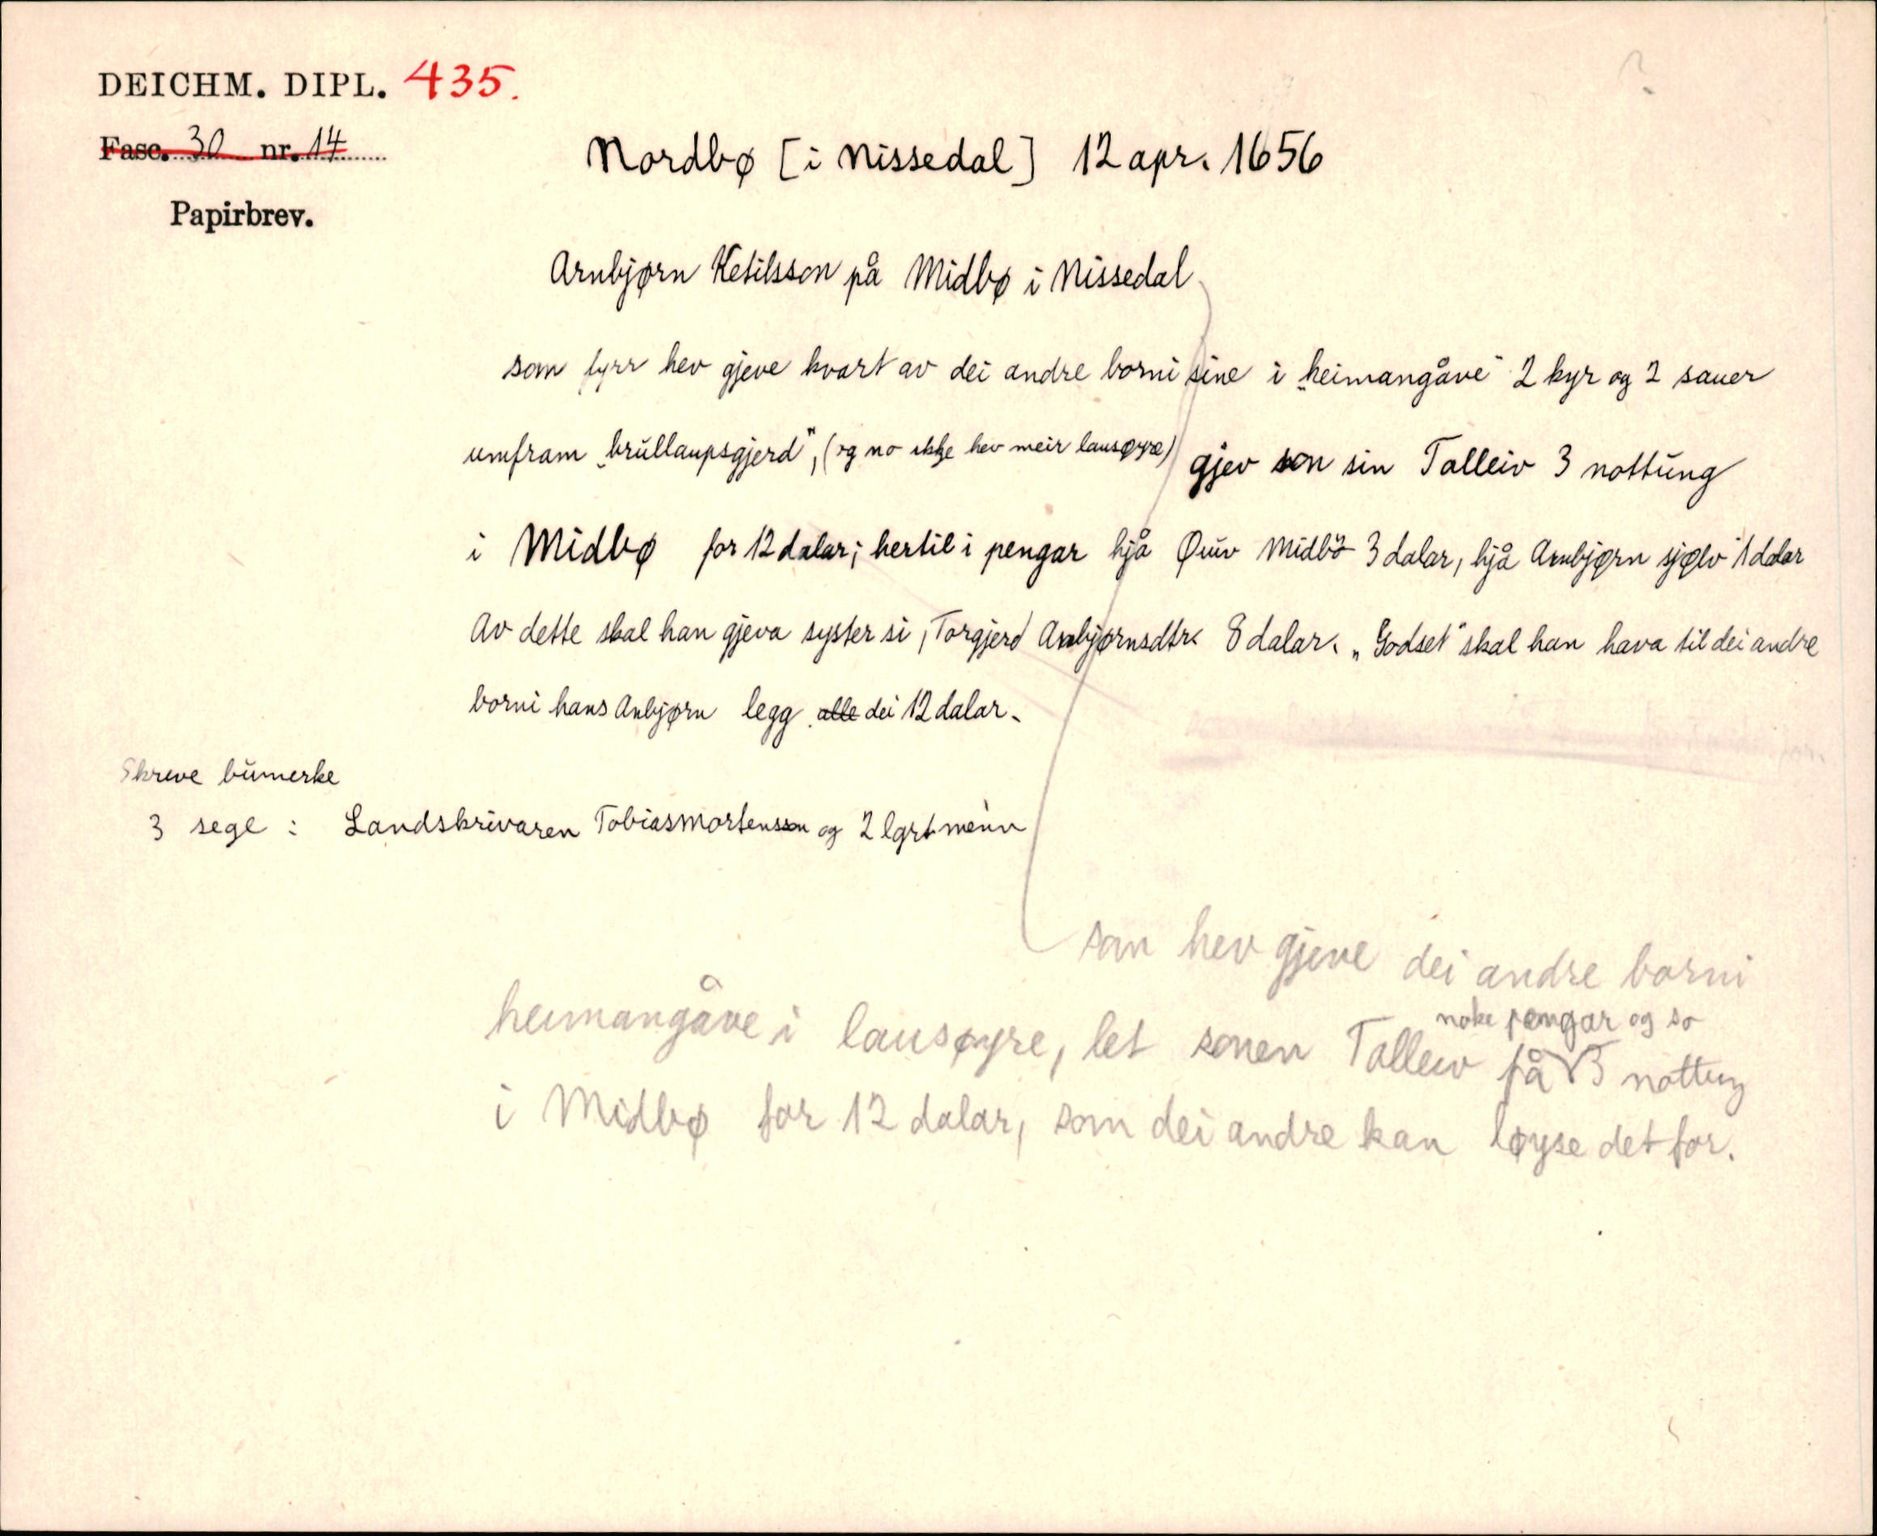 DEICHM. DIPL. 435.
Fasc. 30 nr. 14
Papirbrev.
Nordbø [i Nissedal] 12 apr. 1656
Arnbjørn Ketilsson på Midbø i Nissedal
som fyrr hev gjeve kvart av dei andre borni sine i „heimangåve“ 2 kyr og 2 sauer
umfram „brullaupsgjerd“, (og no ikkje hev meir lausøyre) gjev son sin Talleiv 3 nottung
i Midbø for 12 dalar; hertil i pengar hjå Øuiv Midbö 3 dalar, hjå Arnbjørn sjølv 1 dalar
Av dette skal han gjeva syster si, Torgjerd Arnbjørnsdtr. 8 dalar. „Godset“ skal han hava til dei andre
borni hans Anbjørn legg alle dei 12 dalar.
Skreve bumerke
3 segl : Landskrivaren Tobias Mortensson og 2 lgrt menn
som hev gjeve dei andre borni
heimangåve i lausøyre, let sonen Talleiv få noke pengar og so 3 nottung
i Midbø for 12 dalar, som dei andre kan løyse det for.